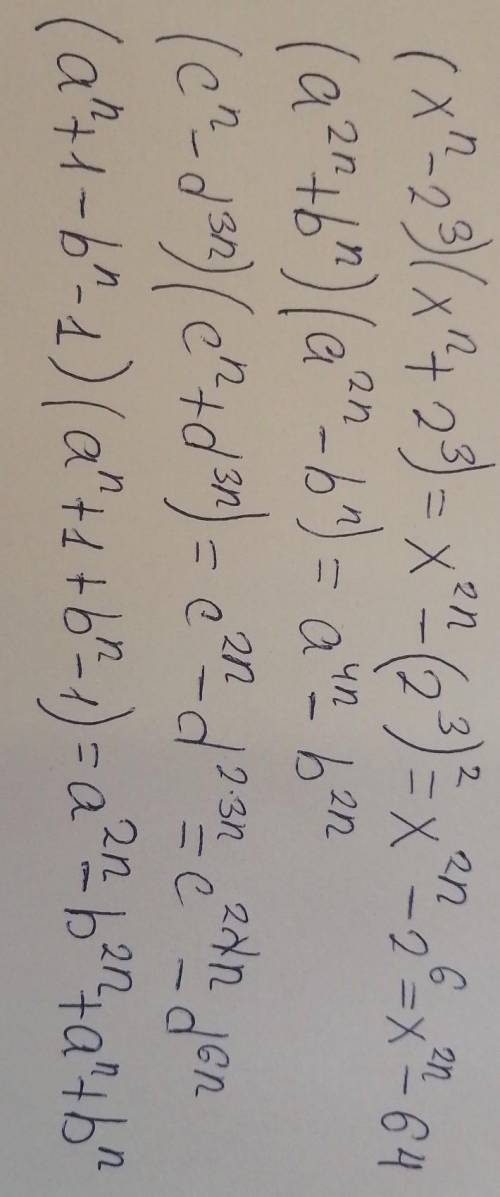 (xⁿ-2³)(xⁿ+2³)=x²ⁿ-(2³)²=x²ⁿ-2⁶=x²ⁿ-64
(a²ⁿ+bⁿ)(a²ⁿ-bⁿ)=a⁴ⁿ-b²ⁿ
(cⁿ-d³ⁿ)(cⁿ+d³ⁿ)=c²ⁿ-d²·³ⁿ=c²ⁿ-d⁶ⁿ
(aⁿ+1-bⁿ-1)(aⁿ+1+bⁿ-1)=a²ⁿ-b²ⁿ+aⁿ+bⁿ